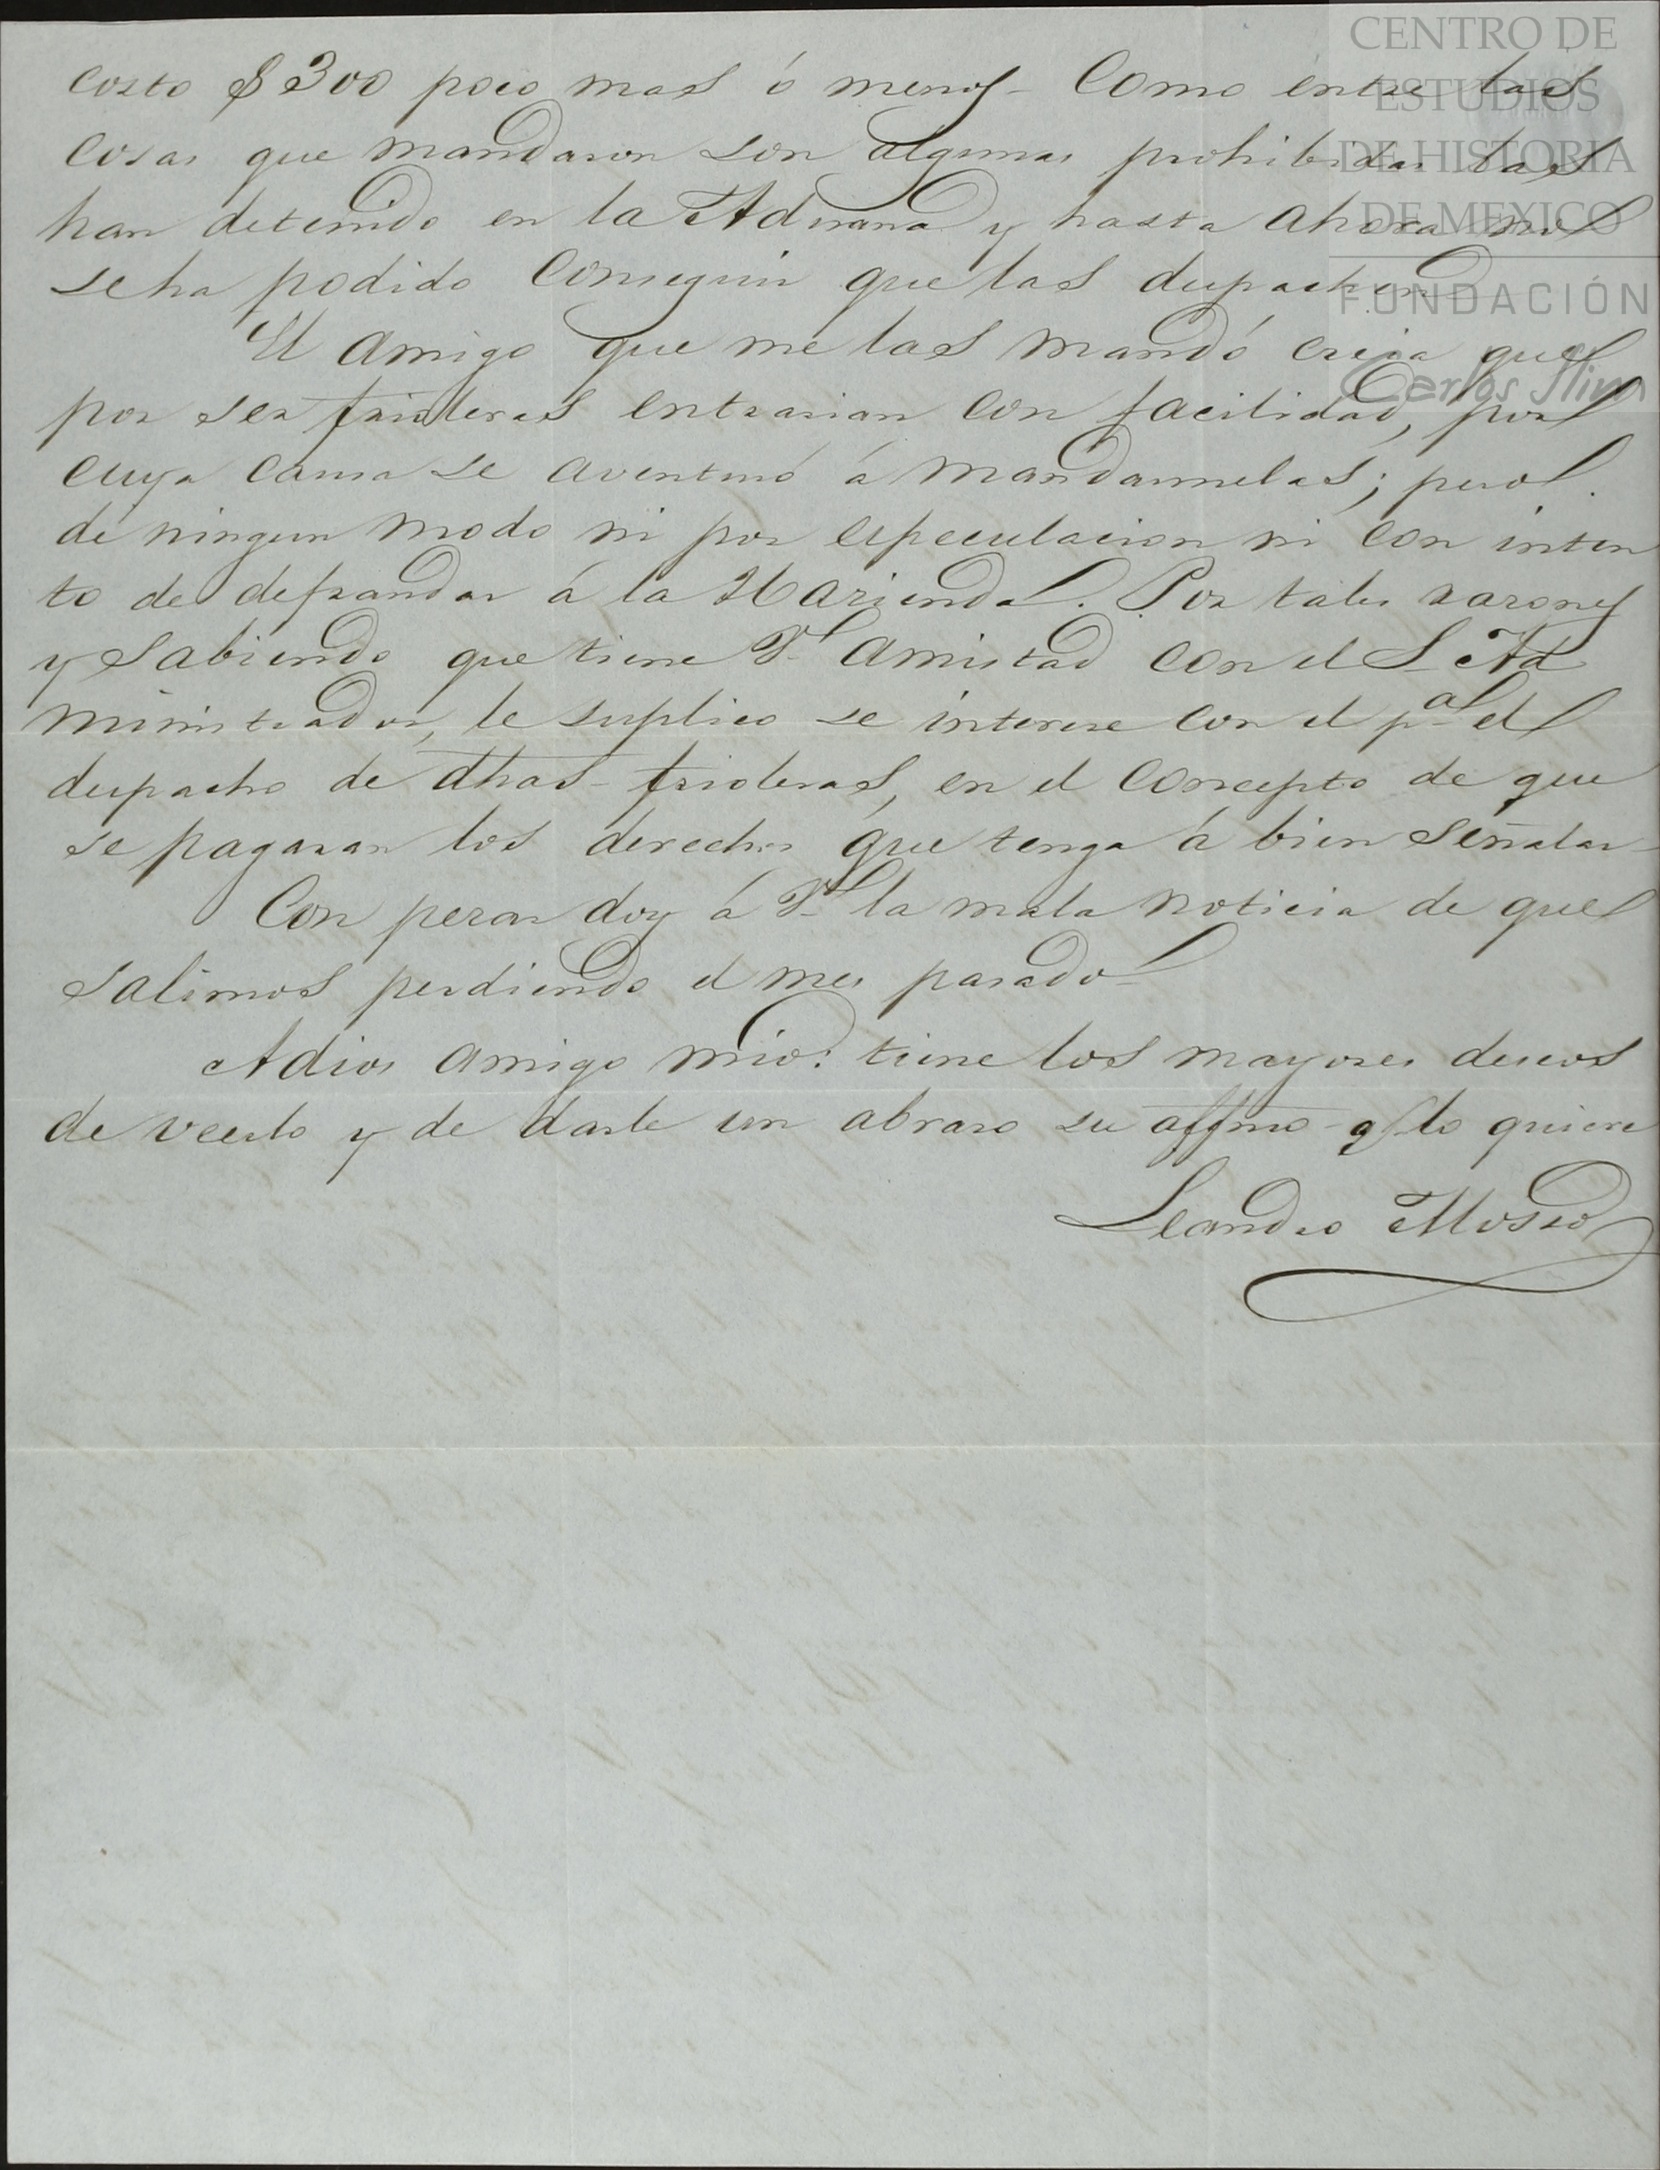 CENTRO DE
ESTUDIOS
DE HISTORIA
DE MEXICO
FUNDACIÓN
Carlos Slim
costo $300 poco mas ó menos- Como entre las
cosas que mandaron son algunas prohibidas las
han detenido en la Aduana y hasta ahora no
se ha podido conseguir que las despachen
El amigo que me las mandó creia que
por ser frioleras entrarian con facilidad, por
cuya causa se aventuró á mandarmelas; pero
de ningun modo ni por especulacion ni con inten
to de defraudar á la Hazienda. Por tales razones
y sabiendo que tiene V. amistad con el S. Ad
ministrador, le suplico se interese con el pa. el
despacho de dhas frioleras, en el concepto de que
se pagaran los derechos que tenga á bien señalar-
Con pesar doy á V. la mala noticia de que
salimos perdiendo el mes pasado-
Adios amigo mio: tiene los mayores deseos
de veerlo y de darle un abraso su affmo q. lo quiere
Leandro Mosso